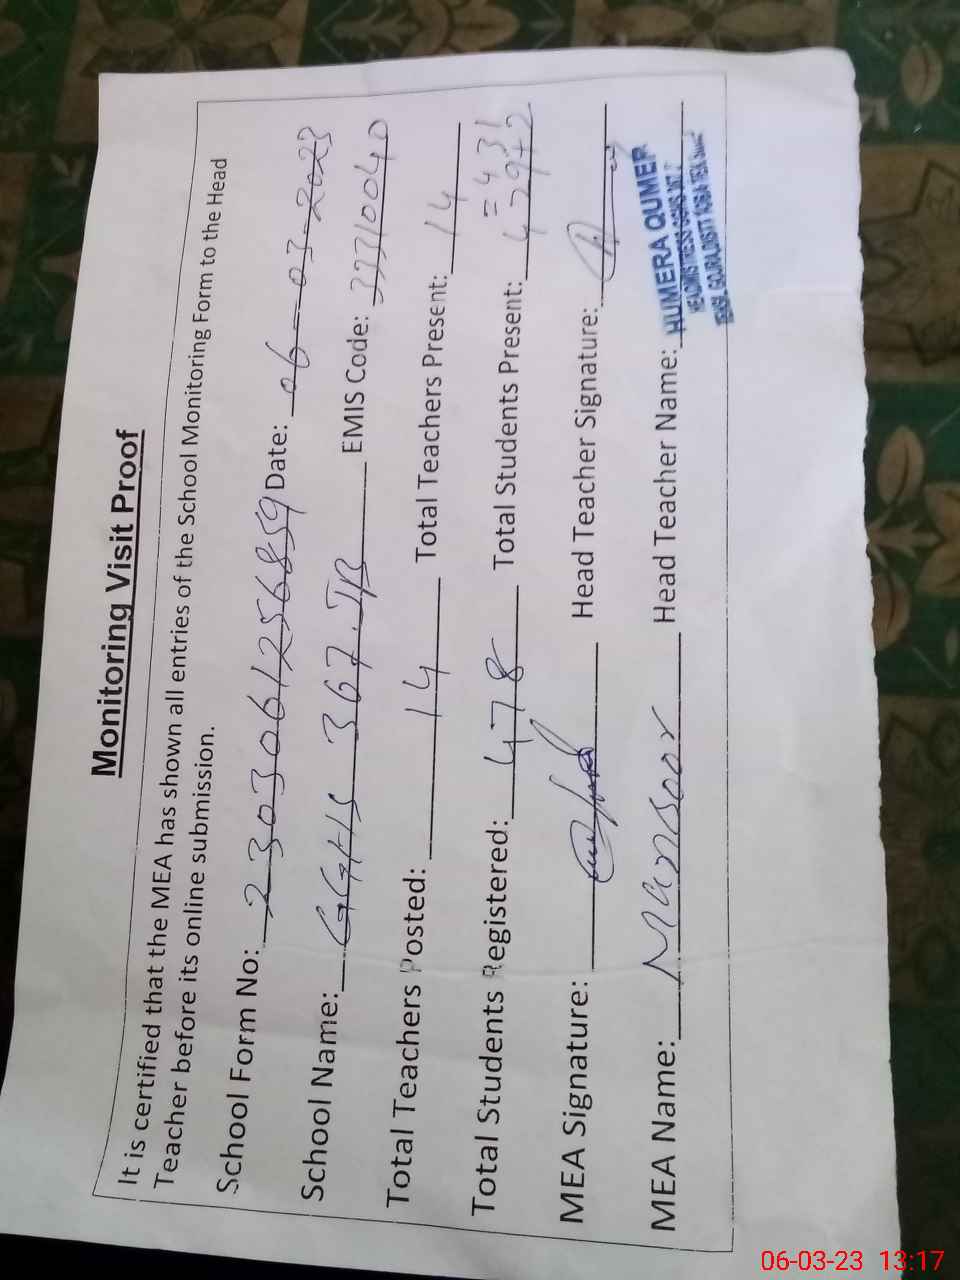 Monitoring Visit Proof
It is certified that the MEA has shown all entries of the School Monitoring Form to the Head
Teacher before its online submission.
School Form No: 2303061256859 Date: 06-03-2023
School Name: GGHS 367 JB EMIS Code: 33310040
Total Teachers Posted: 14 Total Teachers Present: 14
Total Students Registered: 478 Total Students Present:
MEA Signature: Head Teacher Signature:
MEA Name: Mansoor Head Teacher Name: HUMERA QUMER
06-03-23 13:17